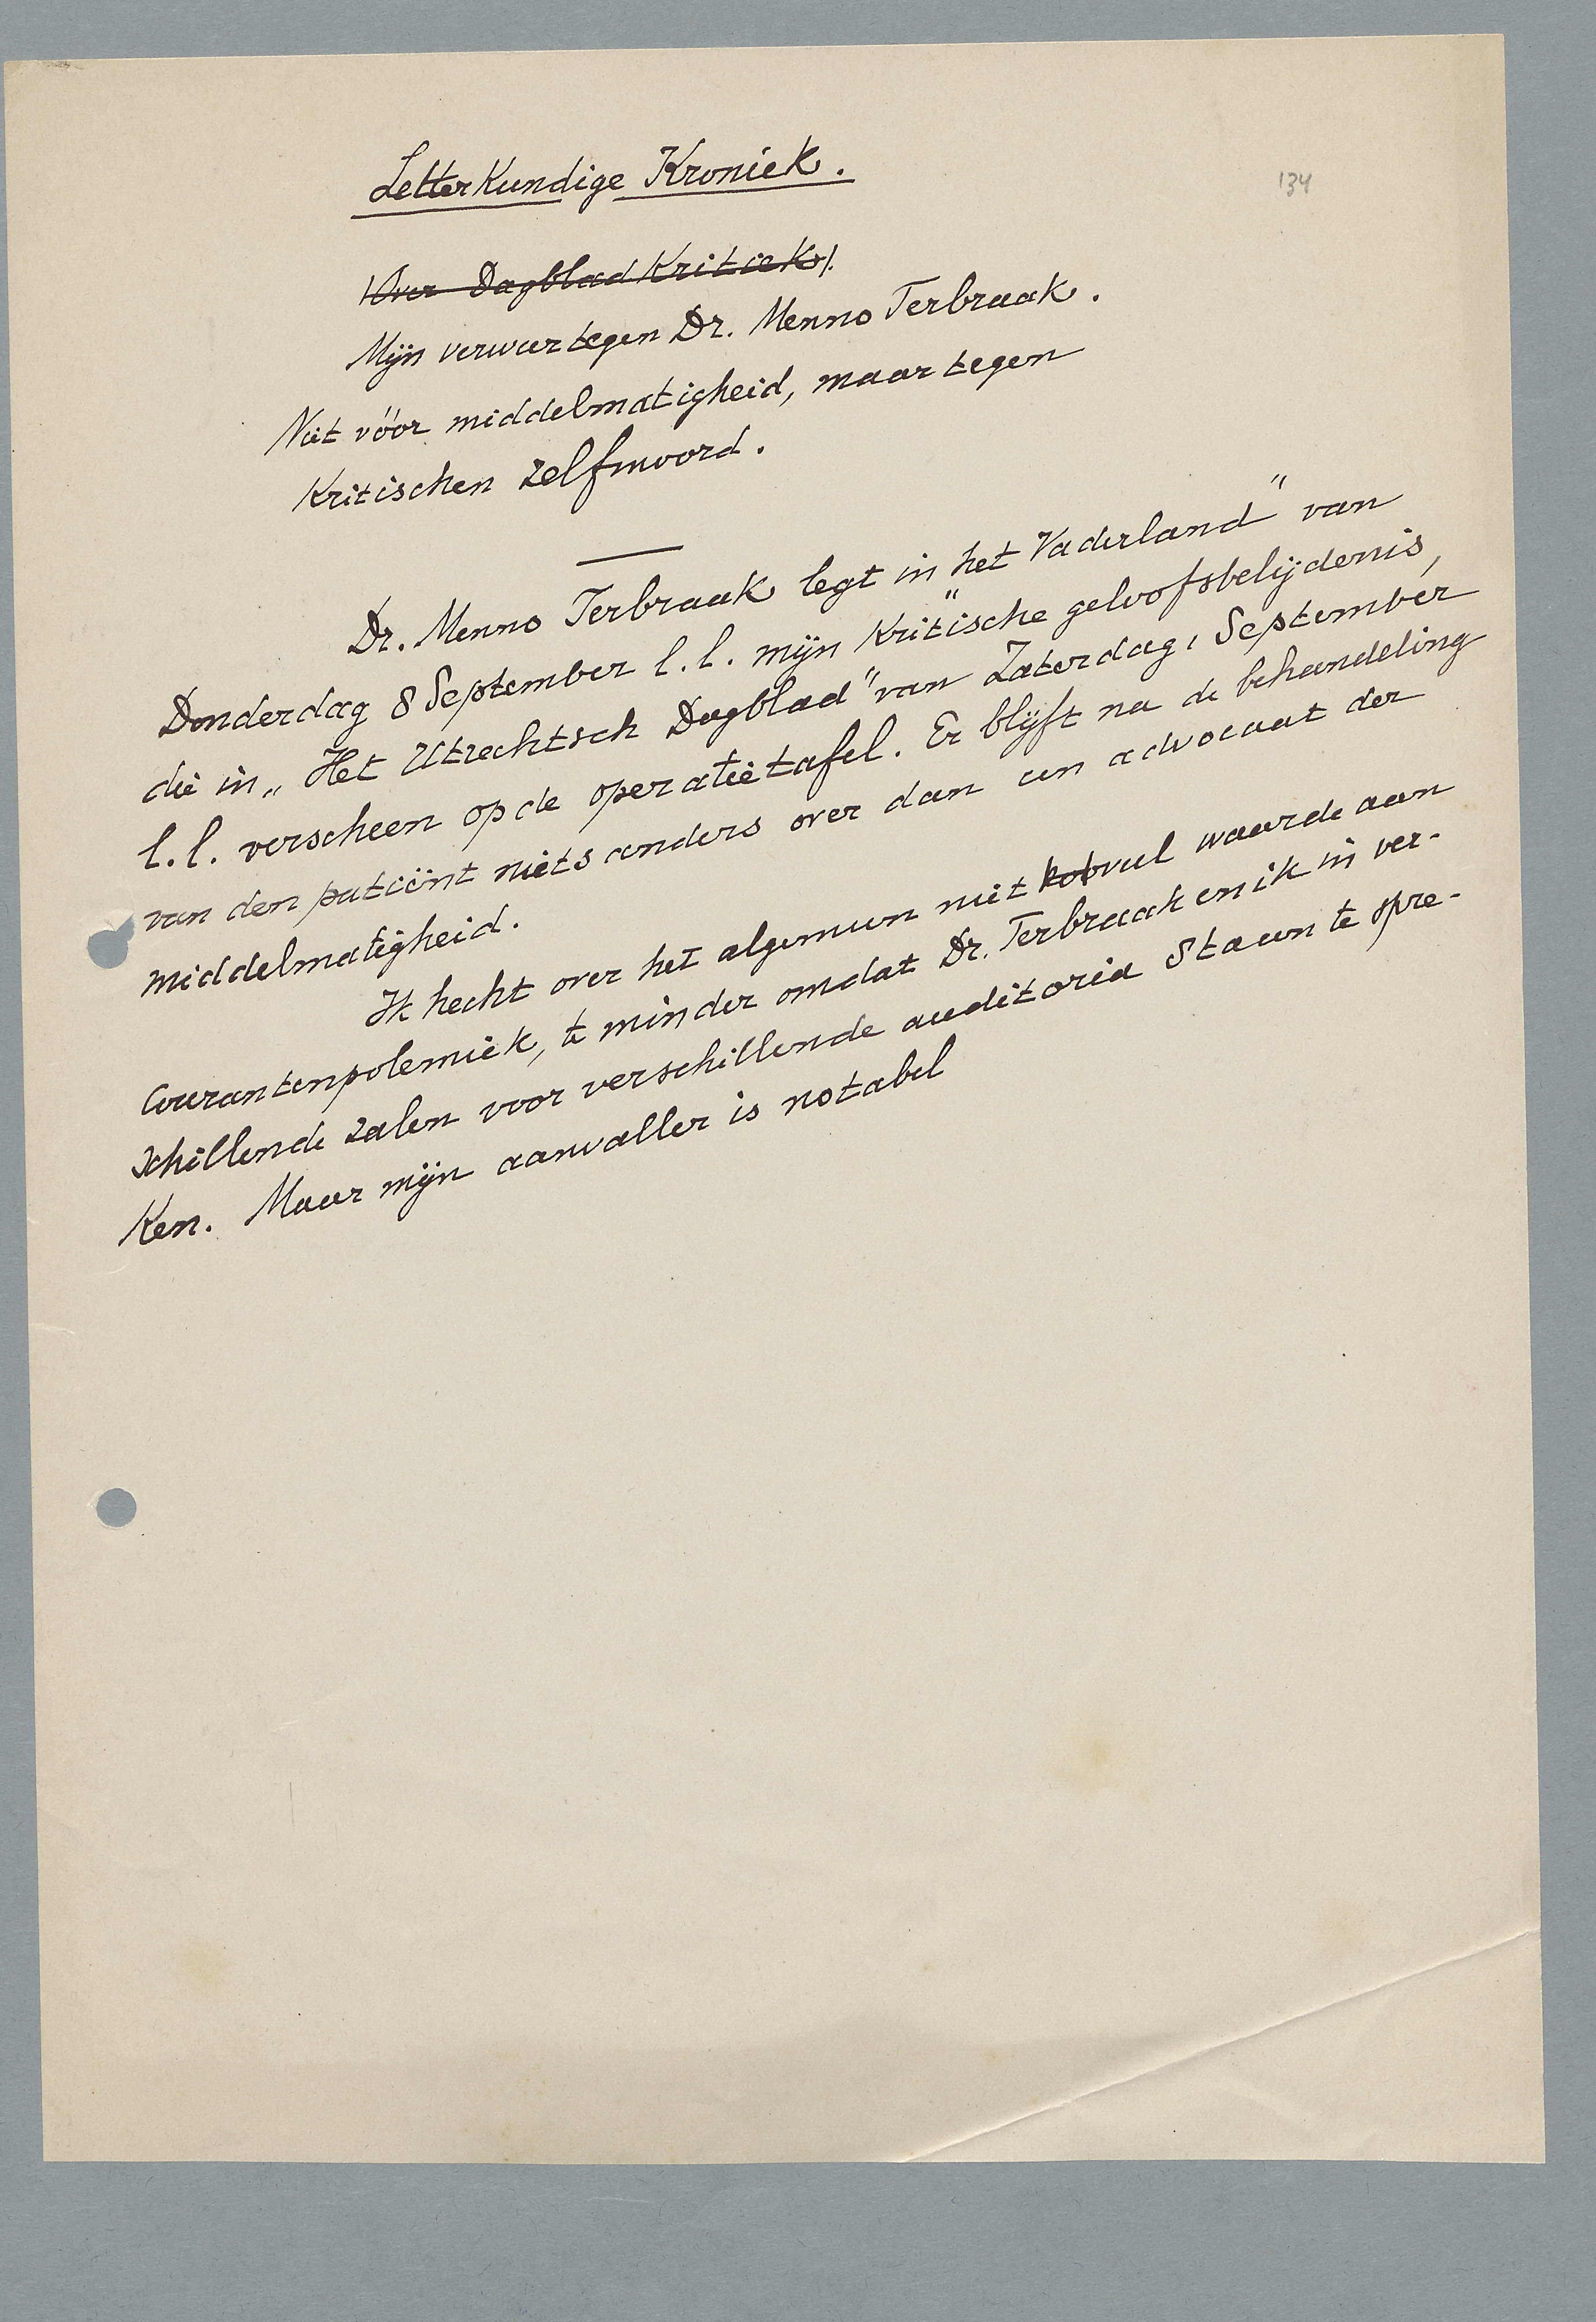 Letterkundige Kroniek.
134
(Over Dagblad Kritiek).
Mijn verweer tegen Dr. Menno Terbraak.
Niet vóór middelmatigheid, maar tegen
Kritischen zelfmoord.
Dr. Menno Terbraak legt in „het Vaderland” van
Donderdag 8 September l.l. mijn kritische geloofsbelijdenis,
die in „Het Utrechtsch Dagblad” van Zaterdag 1 September
l.l. verscheen op de operatietafel. Er blijft na de behandeling
van den patiënt niets anders over dan een advocaat der
middelmatigheid.
Ik hecht over het algemeen niet veel waarde aan
Courantenpolemiek, te minder omdat Dr. Terbraak en ik in ver-
schillende zalen voor verschillende auditoria staan te spre-
Ken. Maar mijn aanvaller is notabel